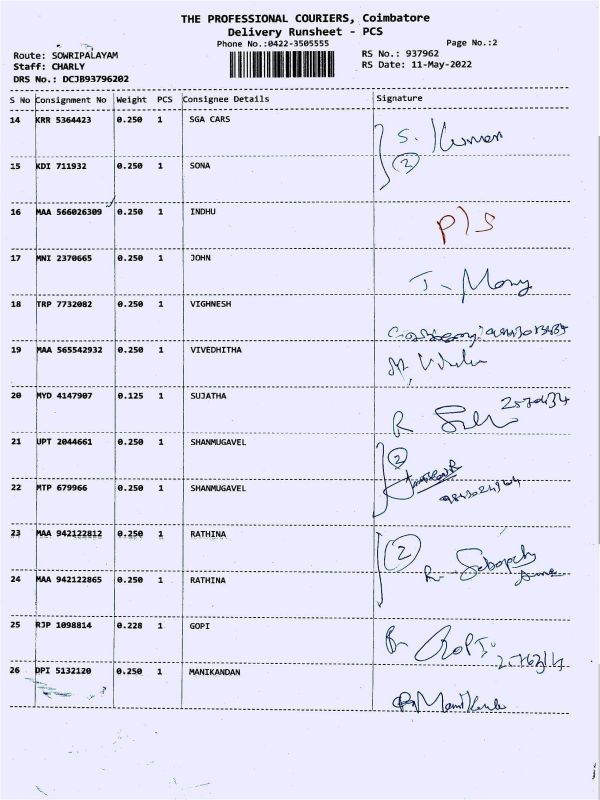 THE PROFESSIONAL COURIERS, Coimbatore
Delivery Runsheet - PCS
Phone No.:0422-3505555
Page No.:2
Route: SOWRIPALAYAM
RS No.: 937962
Staff: CHARLY
RS Date: 11-May-2022
DRS No.: DCJB93796202
S No Consignment No Weight PCS Consignee Details Signature
14 KRR 5364423 0.250 1 SGA CARS
S. Kumar
(2)
15 KDI 711932 0.250 1 SONA
16 MAA 566026309 0.250 1 INDHU
P/S
17 MNI 2370665 0.250 1 JOHN
J. Mony
18 TRP 7732082 0.250 1 VIGHNESH
19 MAA 565542932 0.250 1 VIVEDHITHA
20 MYD 4147907 0.125 1 SUJATHA
R
21 UPT 2044661 0.250 1 SHANMUGAVEL
2
22 MTP 679966 0.250 1 SHANMUGAVEL
23 MAA 942122812 0.250 1 RATHINA
2
24 MAA 942122865 0.250 1 RATHINA
R-
25 RJP 1098814 0.228 1 GOPI
GOPI
26 DPI 5132120 0.250 1 MANIKANDAN